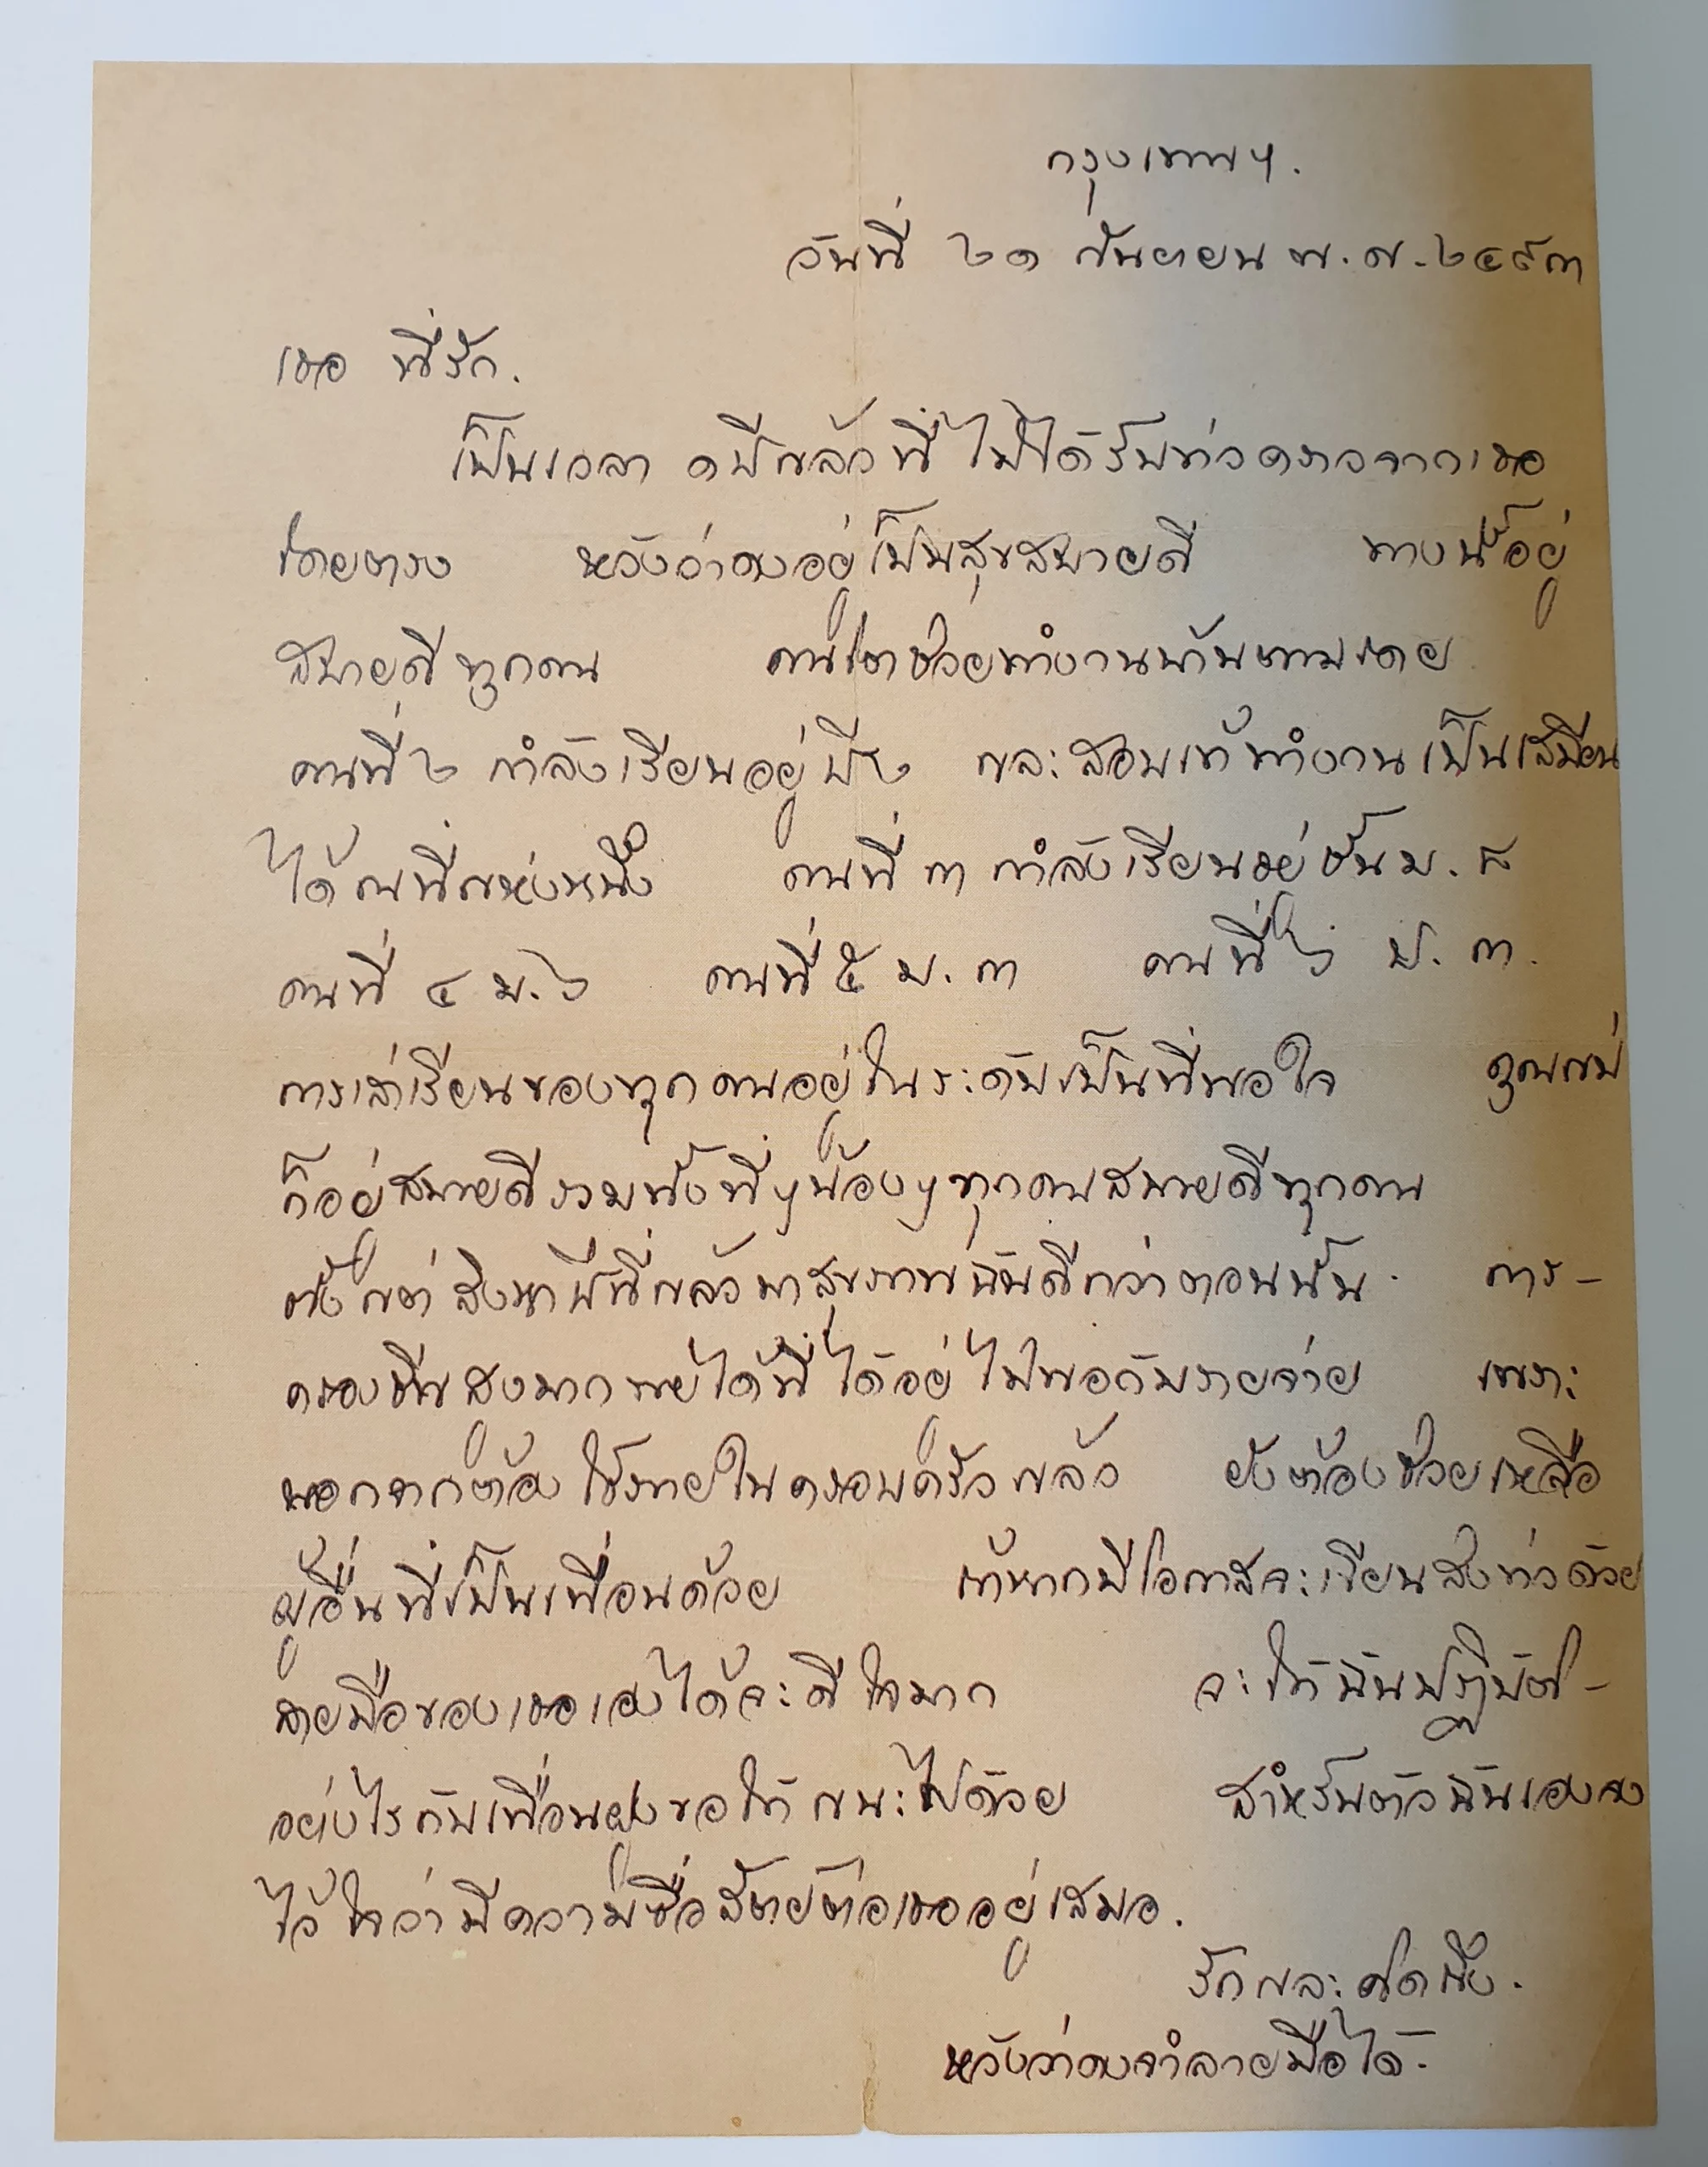 กรุงเทพฯ.
วันที่ ๒๑ กันยายน พ.ศ. ๒๔๙๓
เธอ ที่รัก.
เป็นเวลา ๑ ปีแล้วที่ไม่ได้รับข่าวคราวจากเธอ
โดยตรง หวังว่าคงอยู่เป็นสุขสบายดี ทางนี้อยู่
สบายดีทุกคน คนโตช่วยทำงานบ้านตามเคย
คนที่ ๒ กำลังเรียนอยู่ปี ๒ และสอบเข้าทำงานเป็นเสมียน
ได้ ณ ที่แห่งหนึ่ง คนที่ ๓ กำลังเรียนอยู่ชั้น ม. ๘
คนที่ ๔ ม. ๖ คนที่ ๕ ม. ๓ คนที่ ๖ ป. ๓.
การเล่าเรียนของทุกคนอยู่ในระดับเป็นที่พอใจ คุณแม่
ก็อยู่สบายดีรวมทั้งพี่ๆน้องๆทุกคนสบายดีทุกคน
ตั้งแต่สิงหาปีที่แล้วมาสุขภาพฉันดีกว่าตอนนั้น การ-
ครองชีพสูงมากรายได้ที่ได้อยู่ไม่พอกับรายจ่าย เพราะ
นอกจากต้องใช้ภายในครอบครัวแล้ว ยังต้องช่วยเหลือ
ผู้อื่นที่เป็นเพื่อนด้วย ถ้าหากมีโอกาสจะเขียนส่งข่าวด้วย
ลายมือของเธอเองได้จะดีใจมาก จะให้ฉันปฏิบัติ-
อย่างไรกับเพื่อนฝูงขอให้แนะไปด้วย สำหรับตัวฉันเองจง
ไว้ใจว่ามีความซื่อสัตย์ต่อเธออยู่เสมอ.
รักและคิดถึง.
หวังว่าคงจำลายมือได้.